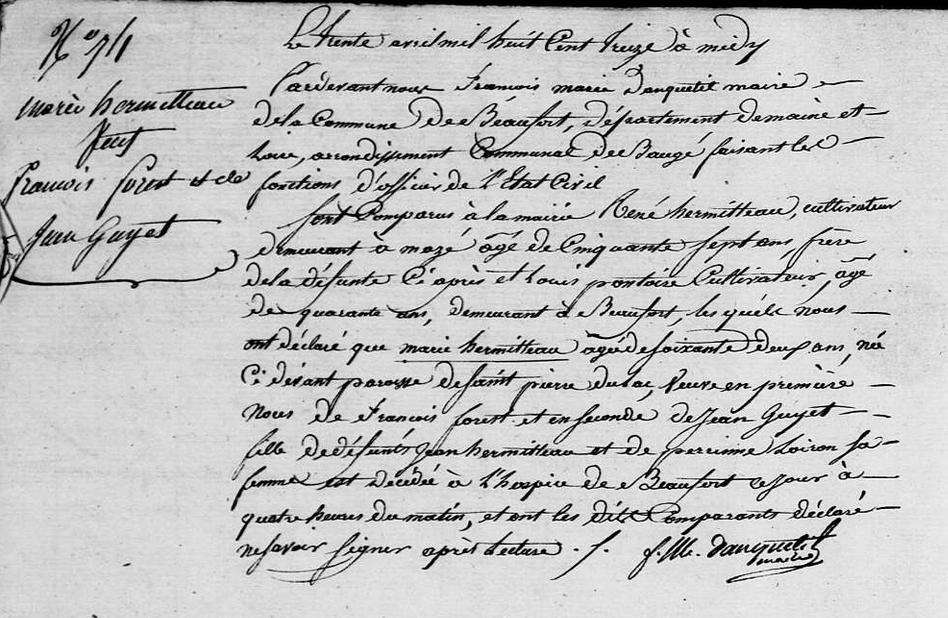 No 74
marie hermitteau
Veuve
francois forest et de
Jean Guyet
Le trente avril mil huit Cent treize à midy
Pardevant nous François marie Danquetil maire
de la Commune De Beaufort, Département de maine et
Loire, arrondissement Communal de Baugé faisant les
fonctions d'officier de l'Etat Civil
Sont Comparus à la mairie René hermitteau, cultivateur
demeurant à mazé âgé de Cinquante sept ans, frère
de la défunte Ci après et Louis pontoire Cultivateur, âgé
de quarante ans, demeurant à Beaufort, les quels nous
ont déclaré que marie hermitteau âgée de soixante deux ans, née
Ci devant paroisse de saint pierre du lac, Veuve en première
Nous de François forest et en seconde de Jean Guyet
fille de défunts Jean hermitteau et de perrinne Loiron sa
femme est décédée à l'hospice de Beaufort ce jour à
quatre heures du matin, et ont les dits Comparants déclaré
ne savoir signer après lecture
f. M. Danquetil
maire